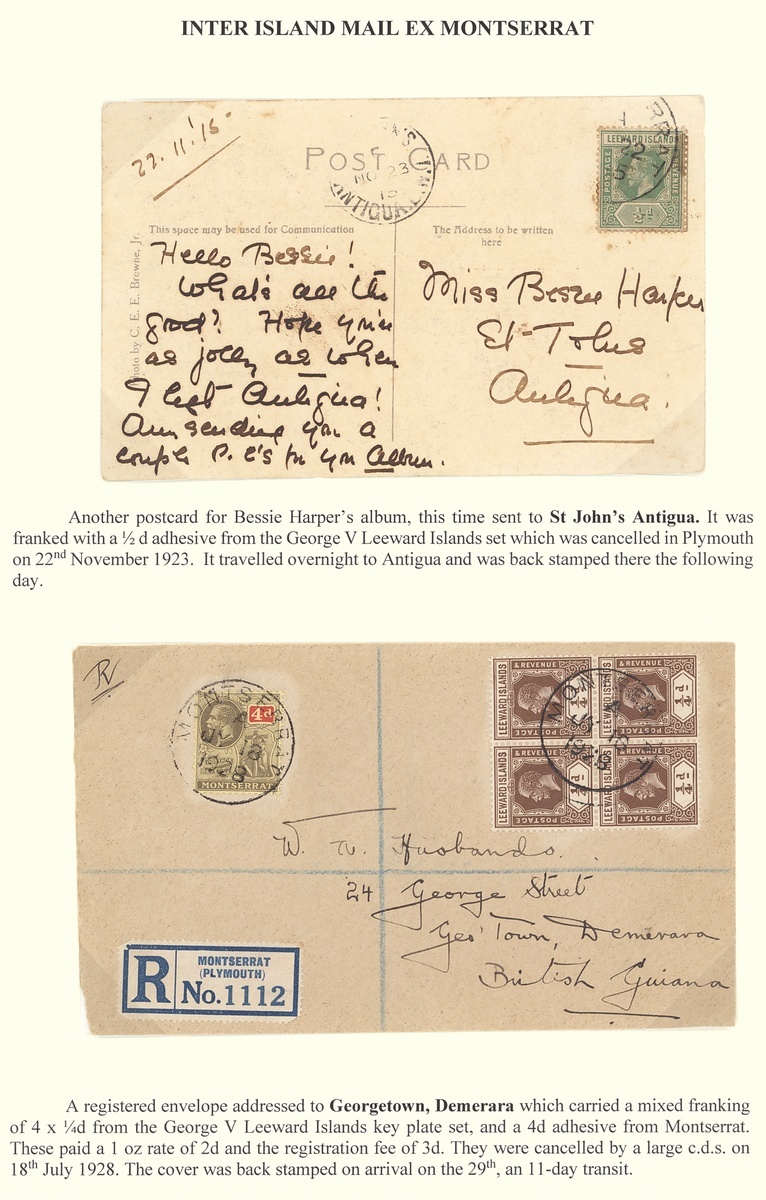 INTER ISLAND MAIL EX MONTSERRAT
22.11.15-
POST CARD
NO 23
15
ANTIGUA
LEEWARD ISLANDS
POSTAGE
REVENUE
½d
This space may be used for Communication
The Address to be written
here
Photo by C. E. E. Browne, Jr.
Hello Bessie!
What's all the
good? Hope you're
as jolly as when
I left Antigua!
Am sending you a
couple P. C's for your Album.
Miss Bessie Harper
Antigua.
Another postcard for Bessie Harper's album, this time sent to St John's Antigua. It was
franked with a ½ d adhesive from the George V Leeward Islands set which was cancelled in Plymouth
on 22nd November 1923. It travelled overnight to Antigua and was back stamped there the following
day.
R
MONTSERRAT
JY 18
1928
4d
MONTSERRAT
LEEWARD ISLANDS
& REVENUE
POSTAGE
¼d
LEEWARD ISLANDS
& REVENUE
POSTAGE
¼d
LEEWARD ISLANDS
POSTAGE
¼d
LEEWARD ISLANDS
POSTAGE
¼d
W. A. Husbands.
24 George Street
Geo' Town, Demerara
British Guiana
R
MONTSERRAT
(PLYMOUTH)
No. 1112
A registered envelope addressed to Georgetown, Demerara which carried a mixed franking
of 4 x ¼d from the George V Leeward Islands key plate set, and a 4d adhesive from Montserrat.
These paid a 1 oz rate of 2d and the registration fee of 3d. They were cancelled by a large c.d.s. on
18th July 1928. The cover was back stamped on arrival on the 29th, an 11-day transit.